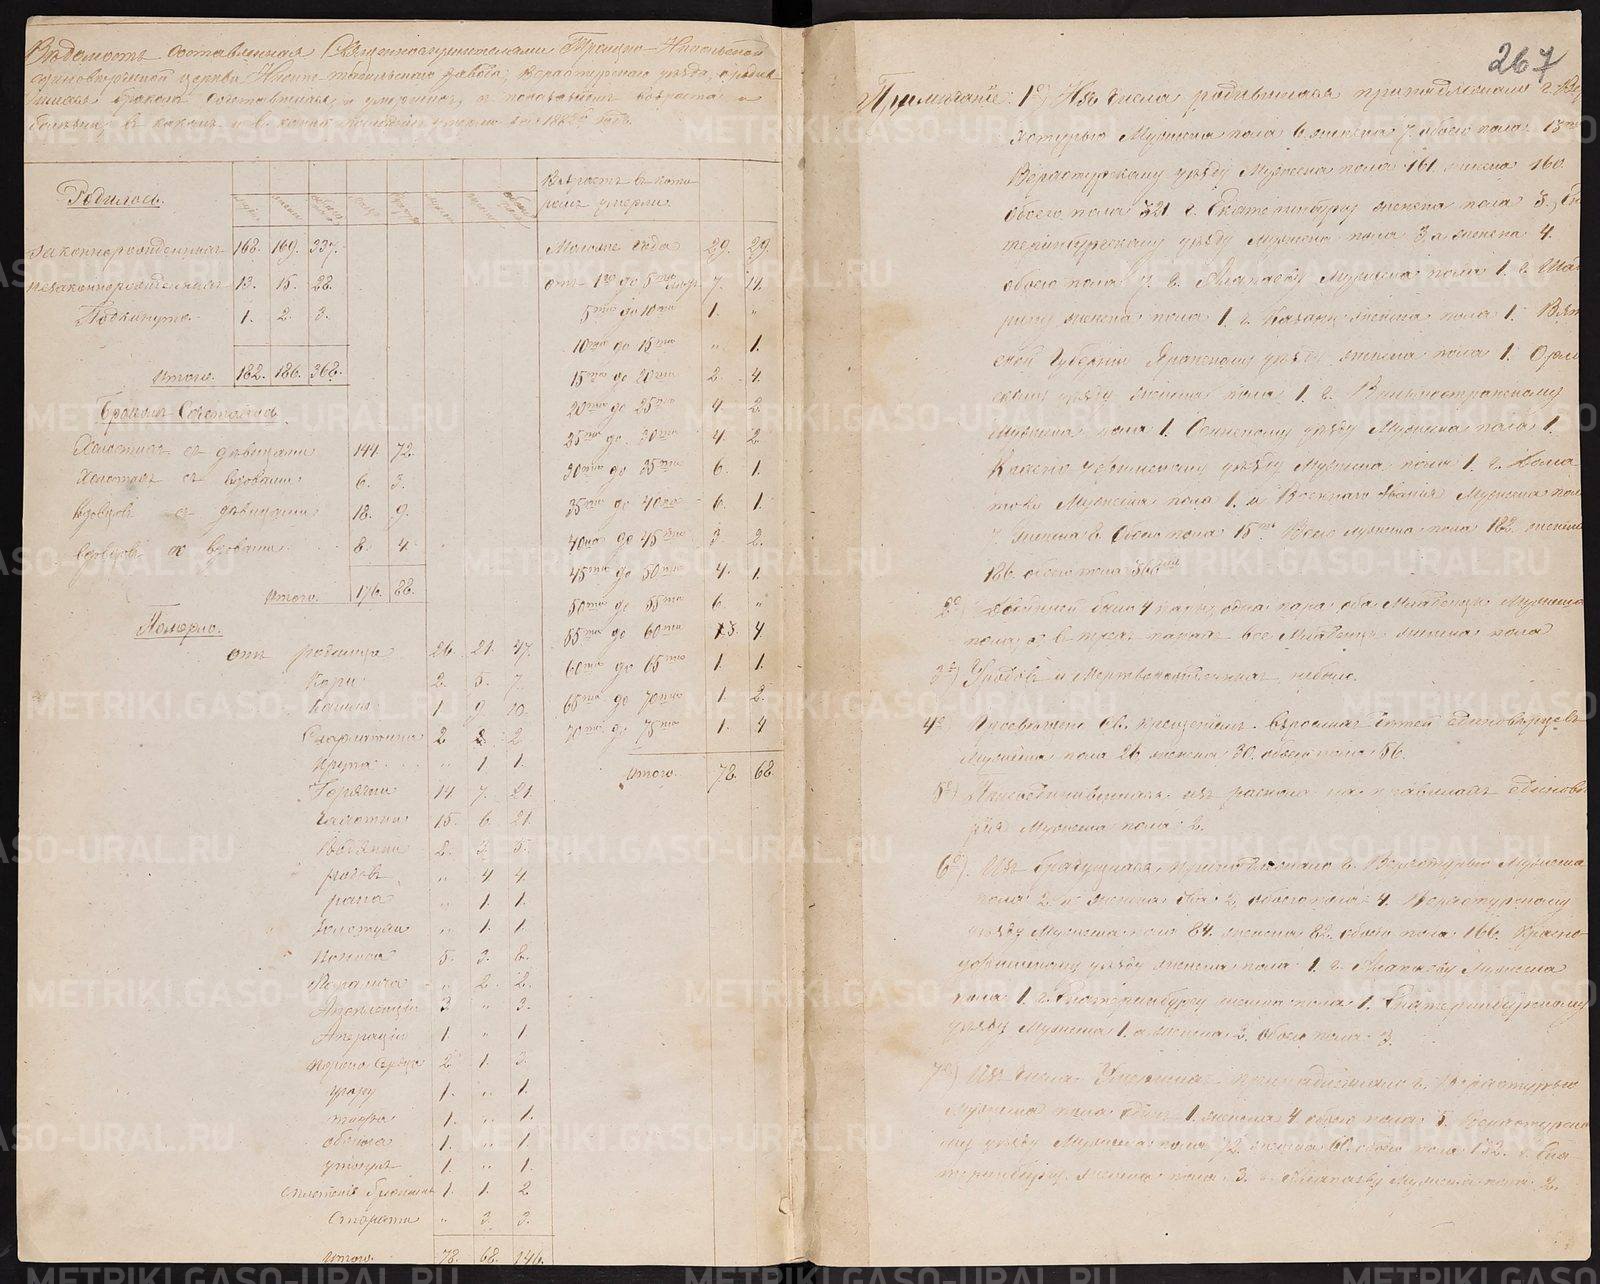 Ведомость составленная Священнослужителями Троицко-Никольской
единоверческой церкви Нижне тагильского завода, Верхотурского уѣзда, о родив
шихся, бракомъ сочетавшихся, и умершихъ, съ показанiемъ возраста и
Родилось.
законнорожденныхъ 168. 169. 337.
незаконнорожденныхъ 13. 15. 28.
Подкинуто. 1. 2. 3.
Итого. 182. 186. 368.
Бракомъ Сочеталось.
Холостыхъ съ дѣвицами 144. 72.
Холостыхъ съ вдовами 6. 3.
Вдовцовъ съ дѣвицами 18. 9.
Вдовцовъ съ вдовами 8. 4.
Итого. 176. 88.
Померло.
отъ родимца 26. 21. 47.
Кори 2. 5. 7.
Кашля 1. 9. 10.
Скарлатины 2 2
Крупа 1 1.
Горячки 14 7. 21.
Чахотки 15. 6. 21.
Водянки 2. 3. 5.
родовъ 4 4
рака 1. 1.
Золотухи 1. 1.
Поноса 5. 3. 8.
Паралича 2. 2.
Апоплексiи 3 3.
Операцiи 1. 1
Порока Сердца 2 1. 3.
угару 1. 1.
тифа 1. 1.
обжога 1. 1.
1. 1.
1. 1. 2
Старости 3. 3.
Итого. 78. 68. 146.
Возрастъ въ кото
ромъ умерли.
Моложе года 29. 29.
отъ 1го до 5ти 7. 11.
5ти до 10ти 1. "
10ти до 15ти " 1.
15ти до 20ти 2. 4.
20ти до 25ти 4. 2.
25ти до 30ти 4. 2
30ти до 35ти 6. 1.
35ти до 40ка 6. 1
40ка до 45ти 3 2.
45ти до 50ти 4. 1.
50ти до 55ти 6. "
55ти до 60ти 4.
60ти до 65ти 1. 1.
65ти до 70ти 1. 2.
70ти до 75ти 1. 4
Итого. 78. 68.
267
Примѣчанiе: 1е) Изъ числа родившихся принадлежало г. Вер
хотурью Мужеска пола 6 женска 7. обоего пола 13
Верхотурскому уѣзду Мужеска пола 161. женска 160.
обоего пола 321 г. Екатеринбургу женска пола 3, Ека
теринбургскому уѣзду мужеска пола 3. а женска 4.
обоего пола 7. г. Алапаеву Мужеска пола 1. г. Шад
ринску женска пола 1. г. Казани женска пола 1. Вят
ской Губернiи уѣзду женска пола 1. Орлов
скому уѣзду женска пола 1. г.
Мужеска пола 1. Осинскому уѣзду Мужеска пола 1.
Красноуфимскому уѣзду Мужеска пола 1. г.
Мужеска пола 1. и Военнаго званiя Мужеска пола
7. Женска 8. Обоего пола 15. Всего мужеска пола 182. женска
186. обоего пола
2е) Двойней было 4 пары, одна пара оба Младенцы Мужеска
пола, а въ трехъ парахъ все Младенцы женска пола
3е) Уродовъ и Мертворожденныхъ небыло.
4е Просвѣщено Св. Крещенiемъ взрослыхъ дѣтей единовѣрцевъ
Мужеска пола 26. женска 30. обоего пола 56.
5е) Присоединившихся изъ раскола на правилахъ единовѣ
рiя Мужеска пола 2.
6е). Изъ брачущихся принадлежало г. Верхотурью Мужеска
пола 2 и женска 2, обоего пола 4. Верхотурскому
уѣзду Мужеска пола 84. женска 82. обоего пола 166. Красно-
уфимскому уѣзду женска пола 1. г. Алапаеву Мужеска
пола 1. г. Екатеринбургу женска пола 1. Екатеринбургскому
уѣзду Мужеска 1. а женска 2. Обоего пола 3.
7е) Изъ числа Умершихъ принадлежало г. Верхотурью
Мужеска пола 1. женска 4 обоего пола 5. Верхотурско
му уѣзду Мужеска пола 72. женска 60. обоего пола 132. г. Ека-
теринбургу женска пола 3. г. Алапаеву Мужеска пола 2.
METRIKI.GASO-URAL.RU